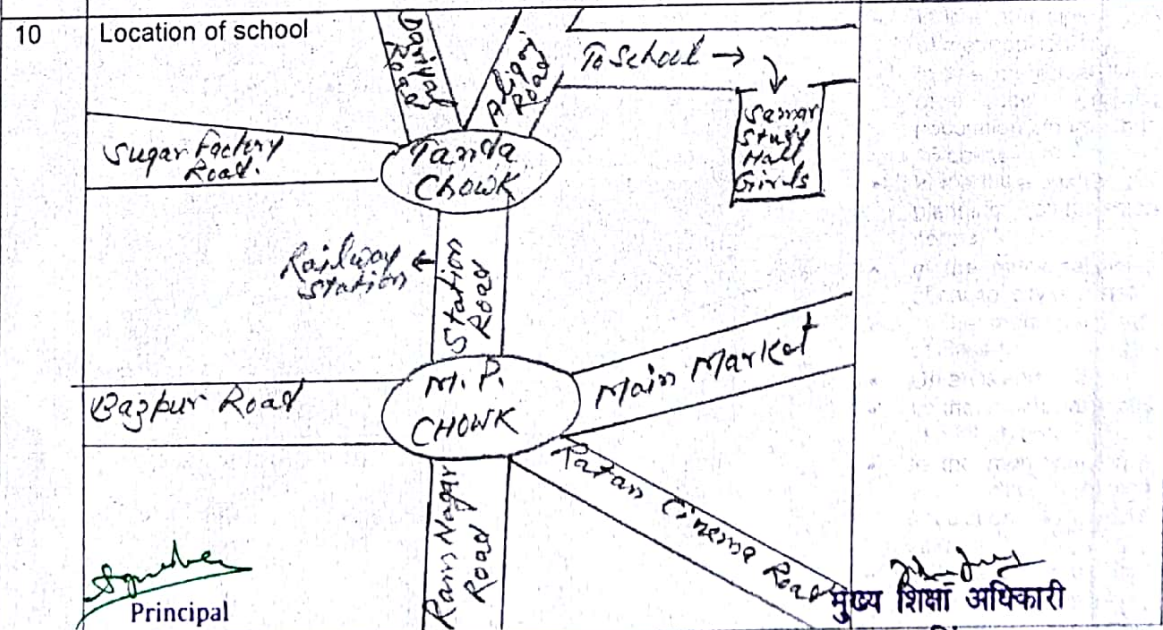 10
Location of school
Dariyal
Road
Aliganj
Road
To School →
Samar
Study
Hall
Girls
Sugar Factory
Road.
Tanda
CHOWK
Railway
Station
Station
Road
M. P.
CHOWK
Main Market
Bazpur Road
Ratan Cinema Road
Ram Nagar
Road
Principal
मुख्य शिक्षा अधिकारी